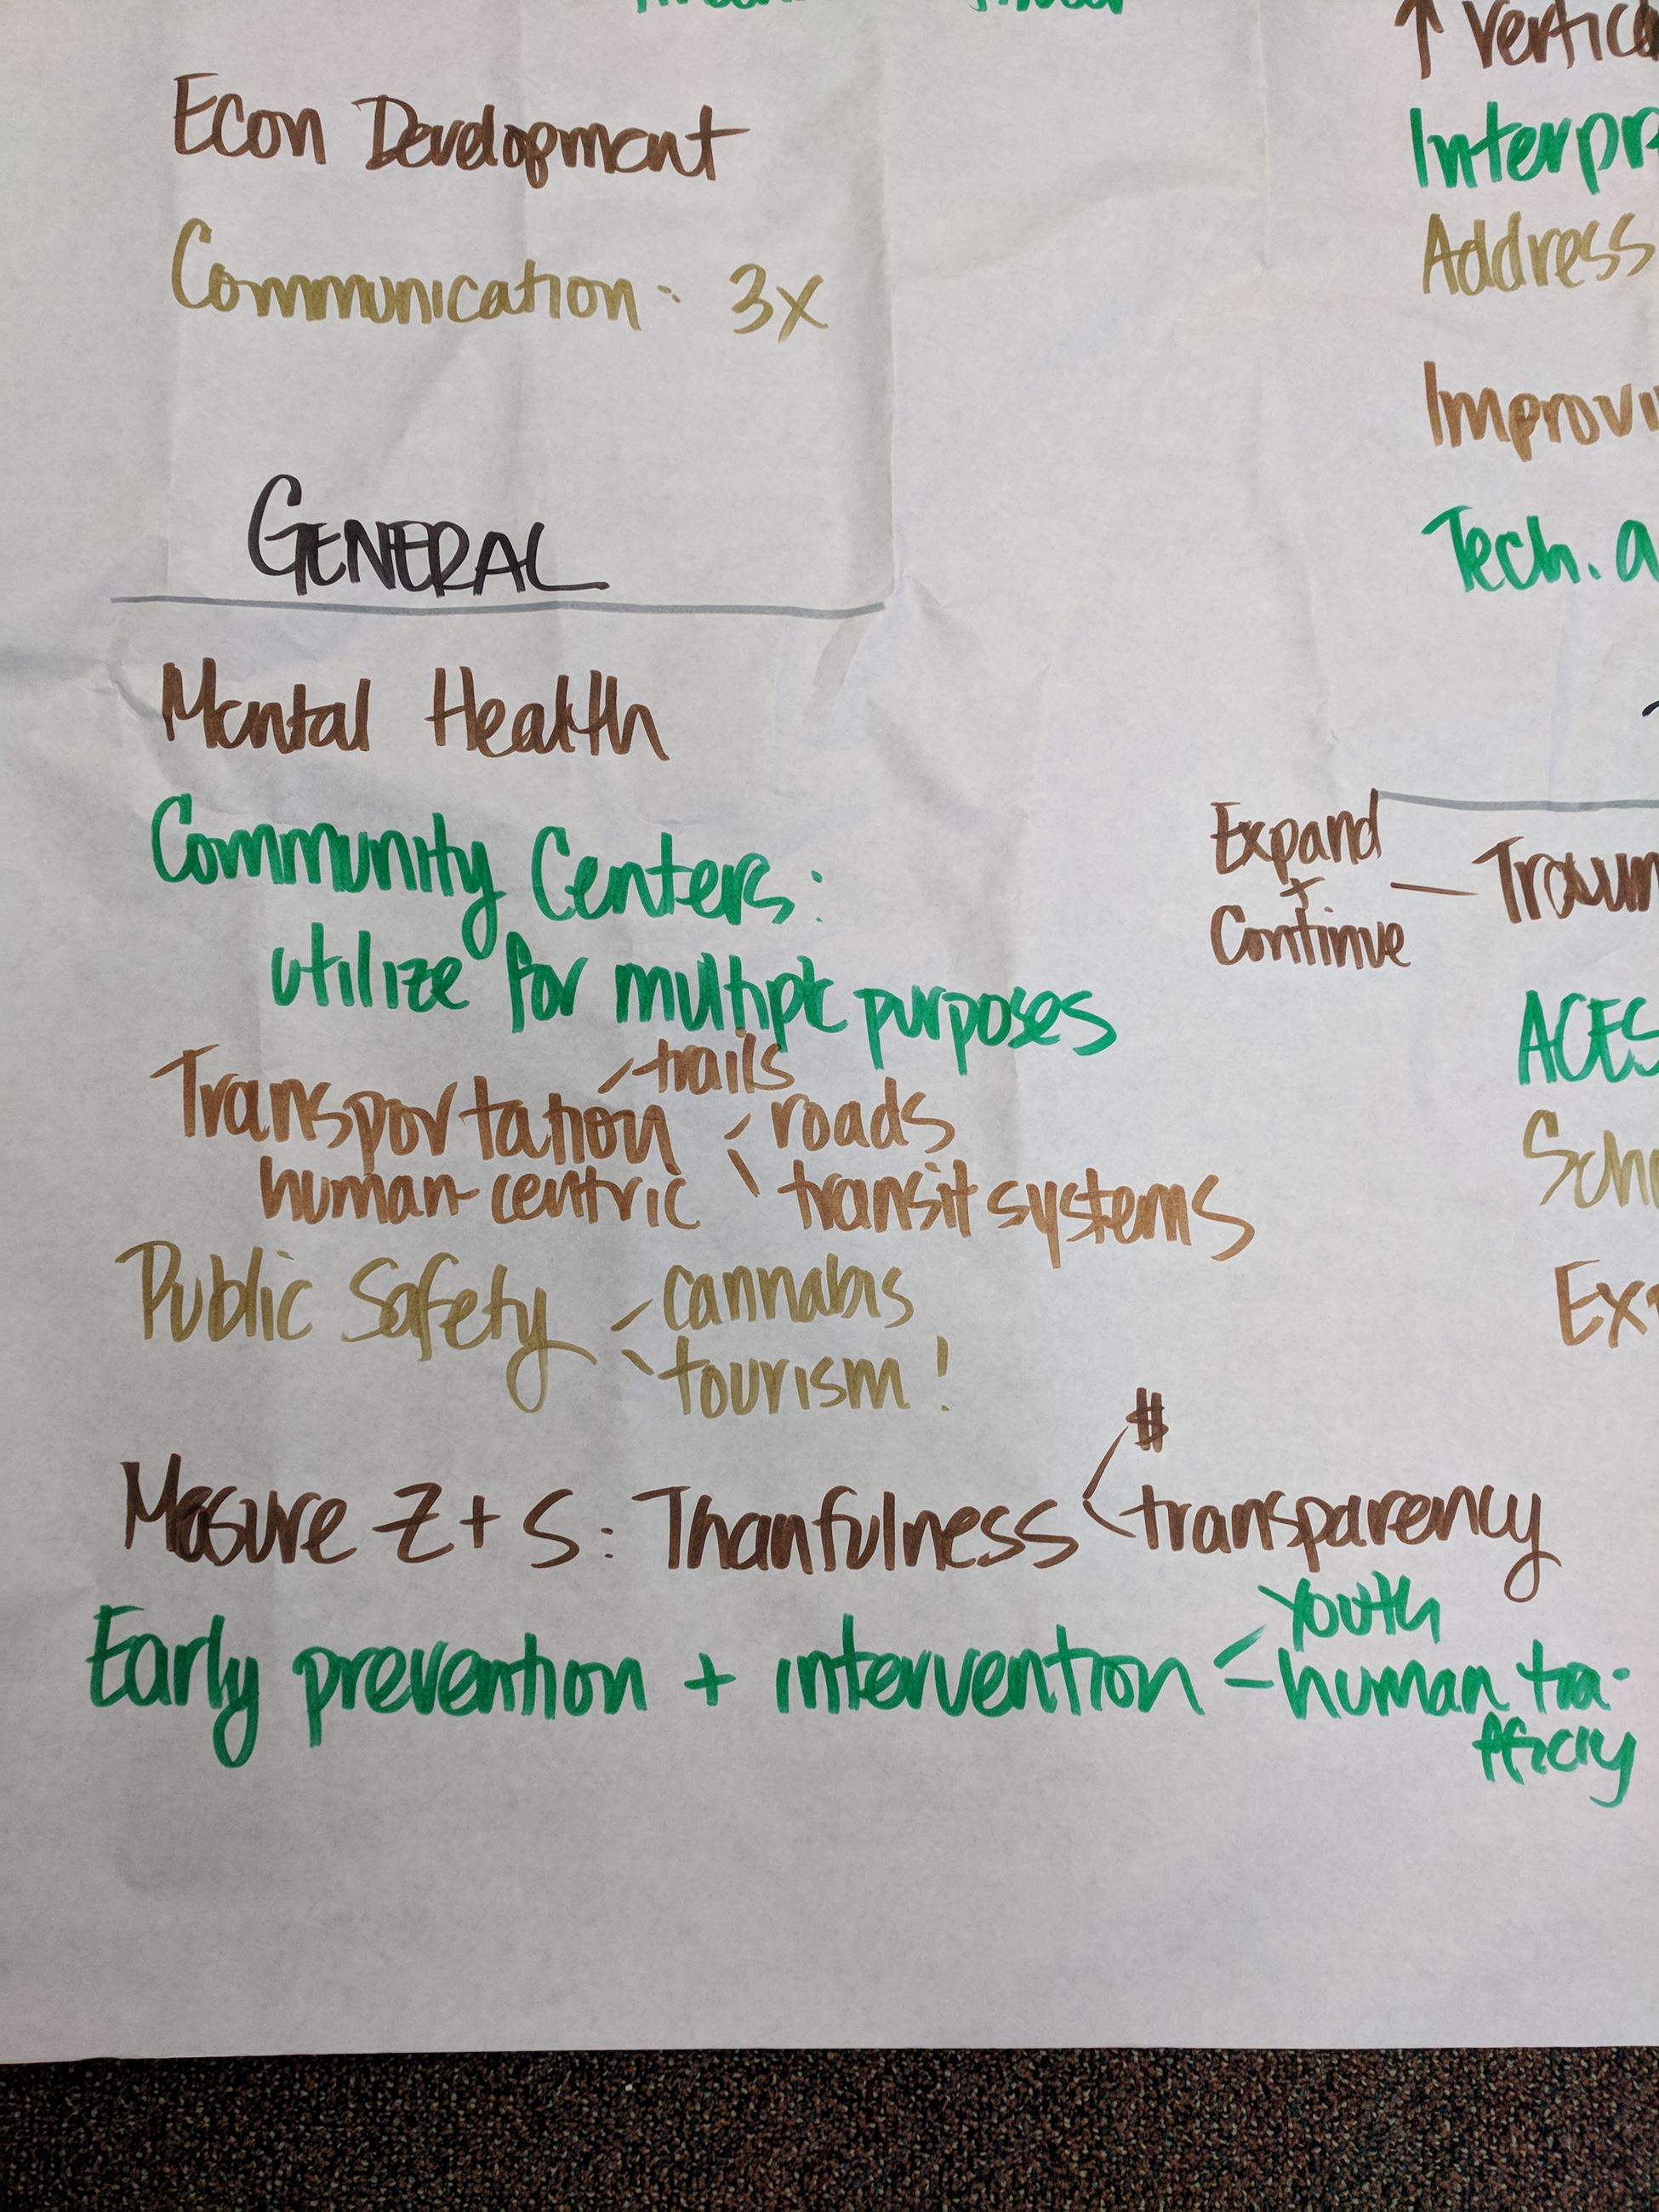 Econ Development
Communication: 3x
GENERAL
Mental Health
Community Centers:
utilize for multiple purposes
trails
Transportation roads
human-centric transit systems
Public Safety cannabis
tourism!
#
Measure Z + S: Thanfulness transparency
youth
Early prevention + intervention human tra-
↑ Vertic
Interpr
Address
Improvi
Tech. a
Expand
+
Continue — Traum
ACES
Sch
Exp